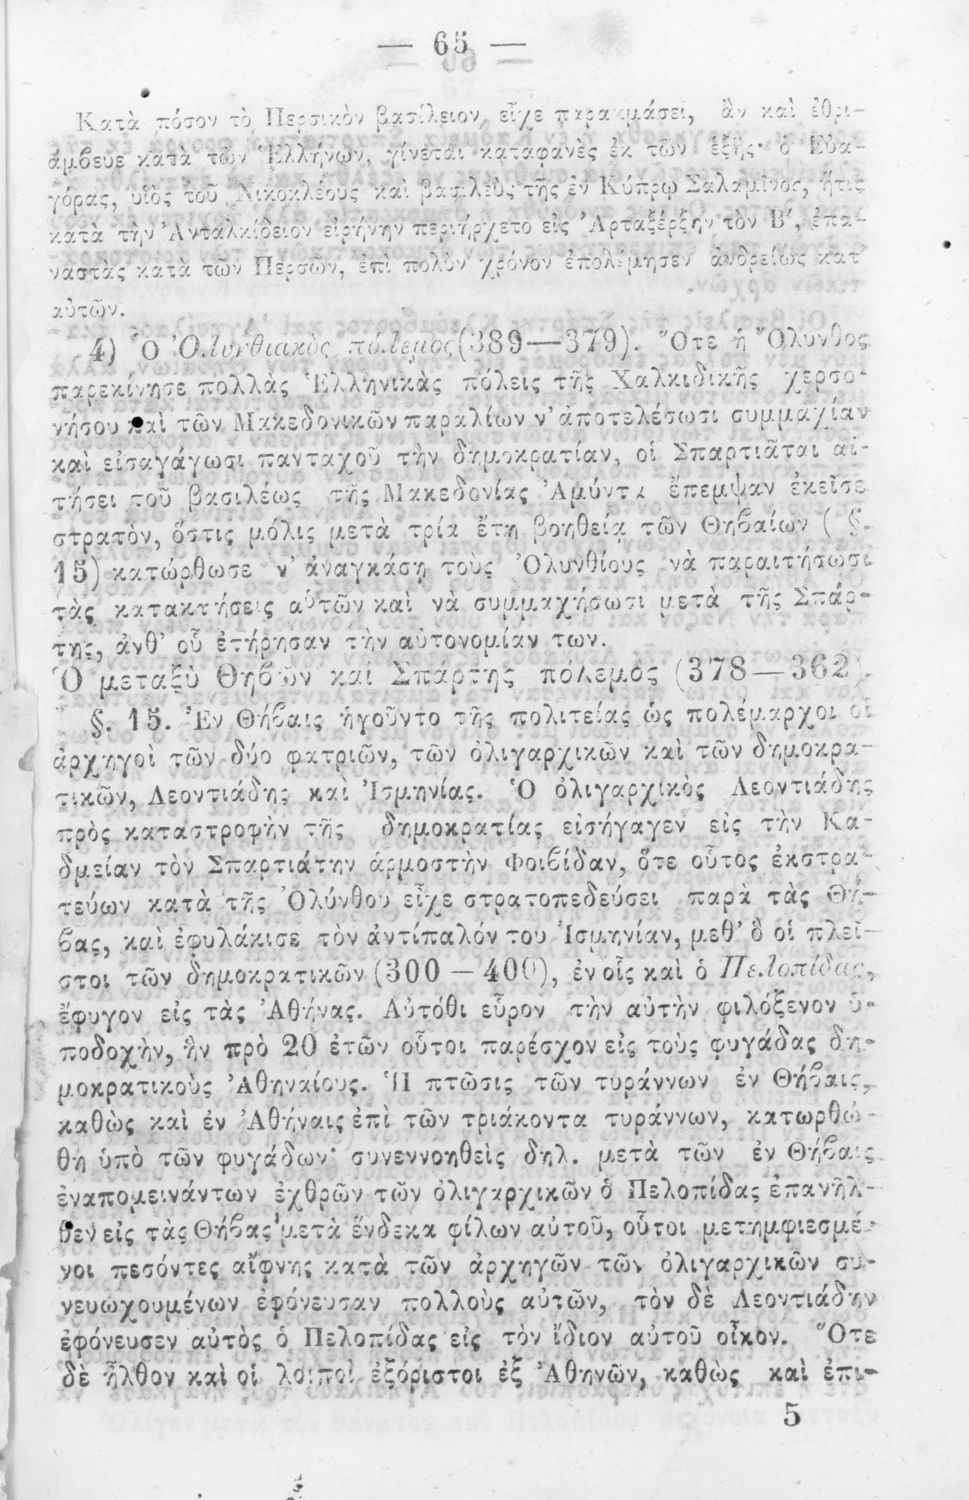 — 65 —
Κατὰ πόσον τὸ Περσικὸν βασίλειον εἶχε παρακμάσει, ἂν καὶ ἐθρι-
άμβευε κατὰ τῶν Ἑλλήνων, γίνεται καταφανὲς ἐκ τῶν ἑξῆς· ὁ Εὐα-
γόρας, υἱὸς τοῦ Νικοκλέους καὶ βασιλεὺς τῆς ἐν Κύπρῳ Σαλαμῖνος, ἥτις
κατὰ τὴν Ἀνταλκίδειον εἰρήνην περιήρχετο εἰς Ἀρταξέρξην τὸν Β′, ἐπα-
ναστὰς κατὰ τῶν Περσῶν, ἐπὶ πολὺν χρόνον ἐπολέμησεν ἀνδρείως κατ'
αὐτῶν.
4) Ὁ Ὀλυνθιακὸς πόλεμος (389—379). Ὅτε ἡ Ὄλυνθος
παρεκίνησε πολλὰς Ἑλληνικὰς πόλεις τῆς Χαλκιδικῆς χερσο-
νήσου καὶ τῶν Μακεδονικῶν παραλίων ν' ἀποτελέσωσι συμμαχίαν
καὶ εἰσαγάγωσι πανταχοῦ τὴν δημοκρατίαν, οἱ Σπαρτιᾶται αἰ-
τήσει τοῦ βασιλέως τῆς Μακεδονίας Ἀμύντα ἔπεμψαν ἐκεῖσε
στρατὸν, ὅστις μόλις μετὰ τρία ἔτη βοηθείᾳ τῶν Θηβαίων ( §.
15) κατώρθωσε ν' ἀναγκάσῃ τοὺς Ὀλυνθίους νὰ παραιτήσωσι
τὰς κατακτήσεις αὑτῶν καὶ νὰ συμμαχήσωσι μετὰ τῆς Σπάρ-
της, ἀνθ' οὗ ἐτήρησαν τὴν αὐτονομίαν των.
Ὁ μεταξὺ Θηβῶν καὶ Σπάρτης πόλεμος (378—362).
§. 15. Ἐν Θήβαις ἡγοῦντο τῆς πολιτείας ὡς πολέμαρχοι οἱ
ἀρχηγοὶ τῶν δύο φατριῶν, τῶν ὀλιγαρχικῶν καὶ τῶν δημοκρα-
τικῶν, Λεοντιάδης καὶ Ἰσμηνίας. Ὁ ὀλιγαρχικὸς Λεοντιάδης
πρὸς καταστροφὴν τῆς δημοκρατίας εἰσήγαγεν εἰς τὴν Κα-
δμείαν τὸν Σπαρτιάτην ἁρμοστὴν Φοιβίδαν, ὅτε οὗτος ἐκστρα-
τεύων κατὰ τῆς Ὀλύνθου εἶχε στρατοπεδεύσει παρὰ τὰς Θή-
βας, καὶ ἐφυλάκισε τὸν ἀντίπαλόν του Ἰσμηνίαν, μεθ' ὃ οἱ πλεῖ-
στοι τῶν δημοκρατικῶν (300 — 400), ἐν οἷς καὶ ὁ Πελοπίδας,
ἔφυγον εἰς τὰς Ἀθήνας. Αὐτόθι εὗρον τὴν αὐτὴν φιλόξενον ὑ-
ποδοχὴν, ἣν πρὸ 20 ἐτῶν οὗτοι παρέσχον εἰς τοὺς φυγάδας δη-
μοκρατικοὺς Ἀθηναίους. Ἡ πτῶσις τῶν τυράννων ἐν Θήβαις,
καθὼς καὶ ἐν Ἀθήναις ἐπὶ τῶν τριάκοντα τυράννων, κατωρθώ-
θη ὑπὸ τῶν φυγάδων· συνεννοηθεὶς δηλ. μετὰ τῶν ἐν Θήβαις
ἐναπομεινάντων ἐχθρῶν τῶν ὀλιγαρχικῶν ὁ Πελοπίδας ἐπανῆλ-
θεν εἰς τὰς Θήβας μετὰ ἕνδεκα φίλων αὑτοῦ, οὗτοι μετημφιεσμέ-
νοι πεσόντες αἴφνης κατὰ τῶν ἀρχηγῶν τῶν ὀλιγαρχικῶν συ-
νευωχουμένων ἐφόνευσαν πολλοὺς αὐτῶν, τὸν δὲ Λεοντιάδην
ἐφόνευσεν αὐτὸς ὁ Πελοπίδας εἰς τὸν ἴδιον αὑτοῦ οἶκον. Ὅτε
δὲ ἦλθον καὶ οἱ λοιποὶ ἐξόριστοι ἐξ Ἀθηνῶν, καθὼς καὶ ἐπι-
5